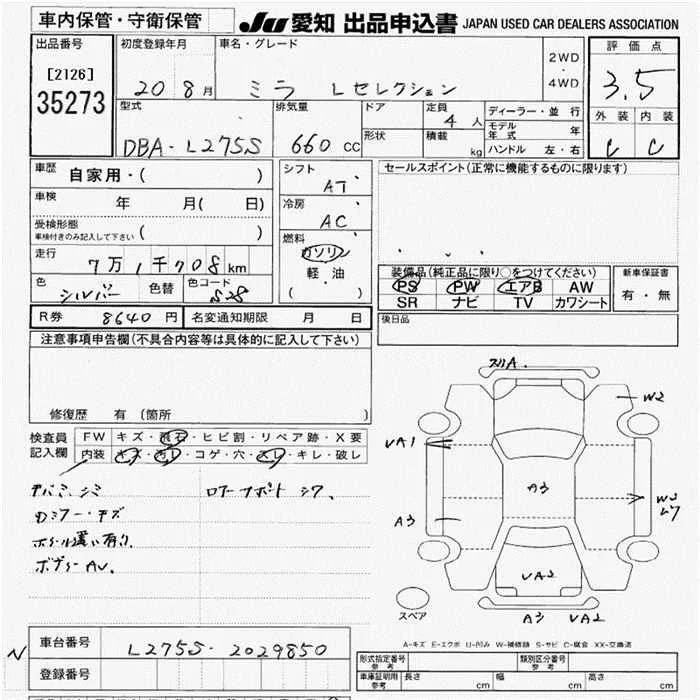 車内保管・守衛保管 JU 愛知 出品申込書 JAPAN USED CAR DEALERS ASSOCIATION
出品番号 初度登録年月 車名・グレード 評価点
[2126] 2WD
35273 20 8月 ミラ Lセレクション ・ 3.5
4WD
型式 排気量 ドア 定員 ディーラー・並行 外装 内装
4人 モデル年式 年
DBA-L275S 660cc 形状 積載 kg ハンドル 左・右 C C
車歴 自家用・( ) シフト セールスポイント(正常に機能するものに限ります)
AT
車検 年 月( 日) 冷房
AC
受検形態
車検付きのみ記入して下さい ( ) 燃料
ガソリン
走行 7万1千708km 軽油 装備品(純正品に限り○をつけてください) 新車保証書
色 シルバー 色替 色コード S28 ( ) PS PW エアB AW 有・無
SR ナビ TV カワシート
R券 8640円 名変通知期限 月 日 後日品
注意事項申告欄(不具合内容等は具体的に記入して下さい)
修復歴 有(箇所 )
検査員 FW キズ・飛石・ヒビ割・リペア跡・X要
記入欄 内装 キズ・汚レ・コゲ・穴・スレ・キレ・破レ
スリA
W2
UA1
A3
A3
UA2
A3 UA2
スペア
A-キズ E-エクボ U-凹み W-補修跡 S-サビ C-腐食 XX-交換済
N 車台番号 L275S-2029850
登録番号
形式指定番号 参考 類別区分番号 参考
車庫証明用 参考 長さ cm 幅 cm 高さ cm